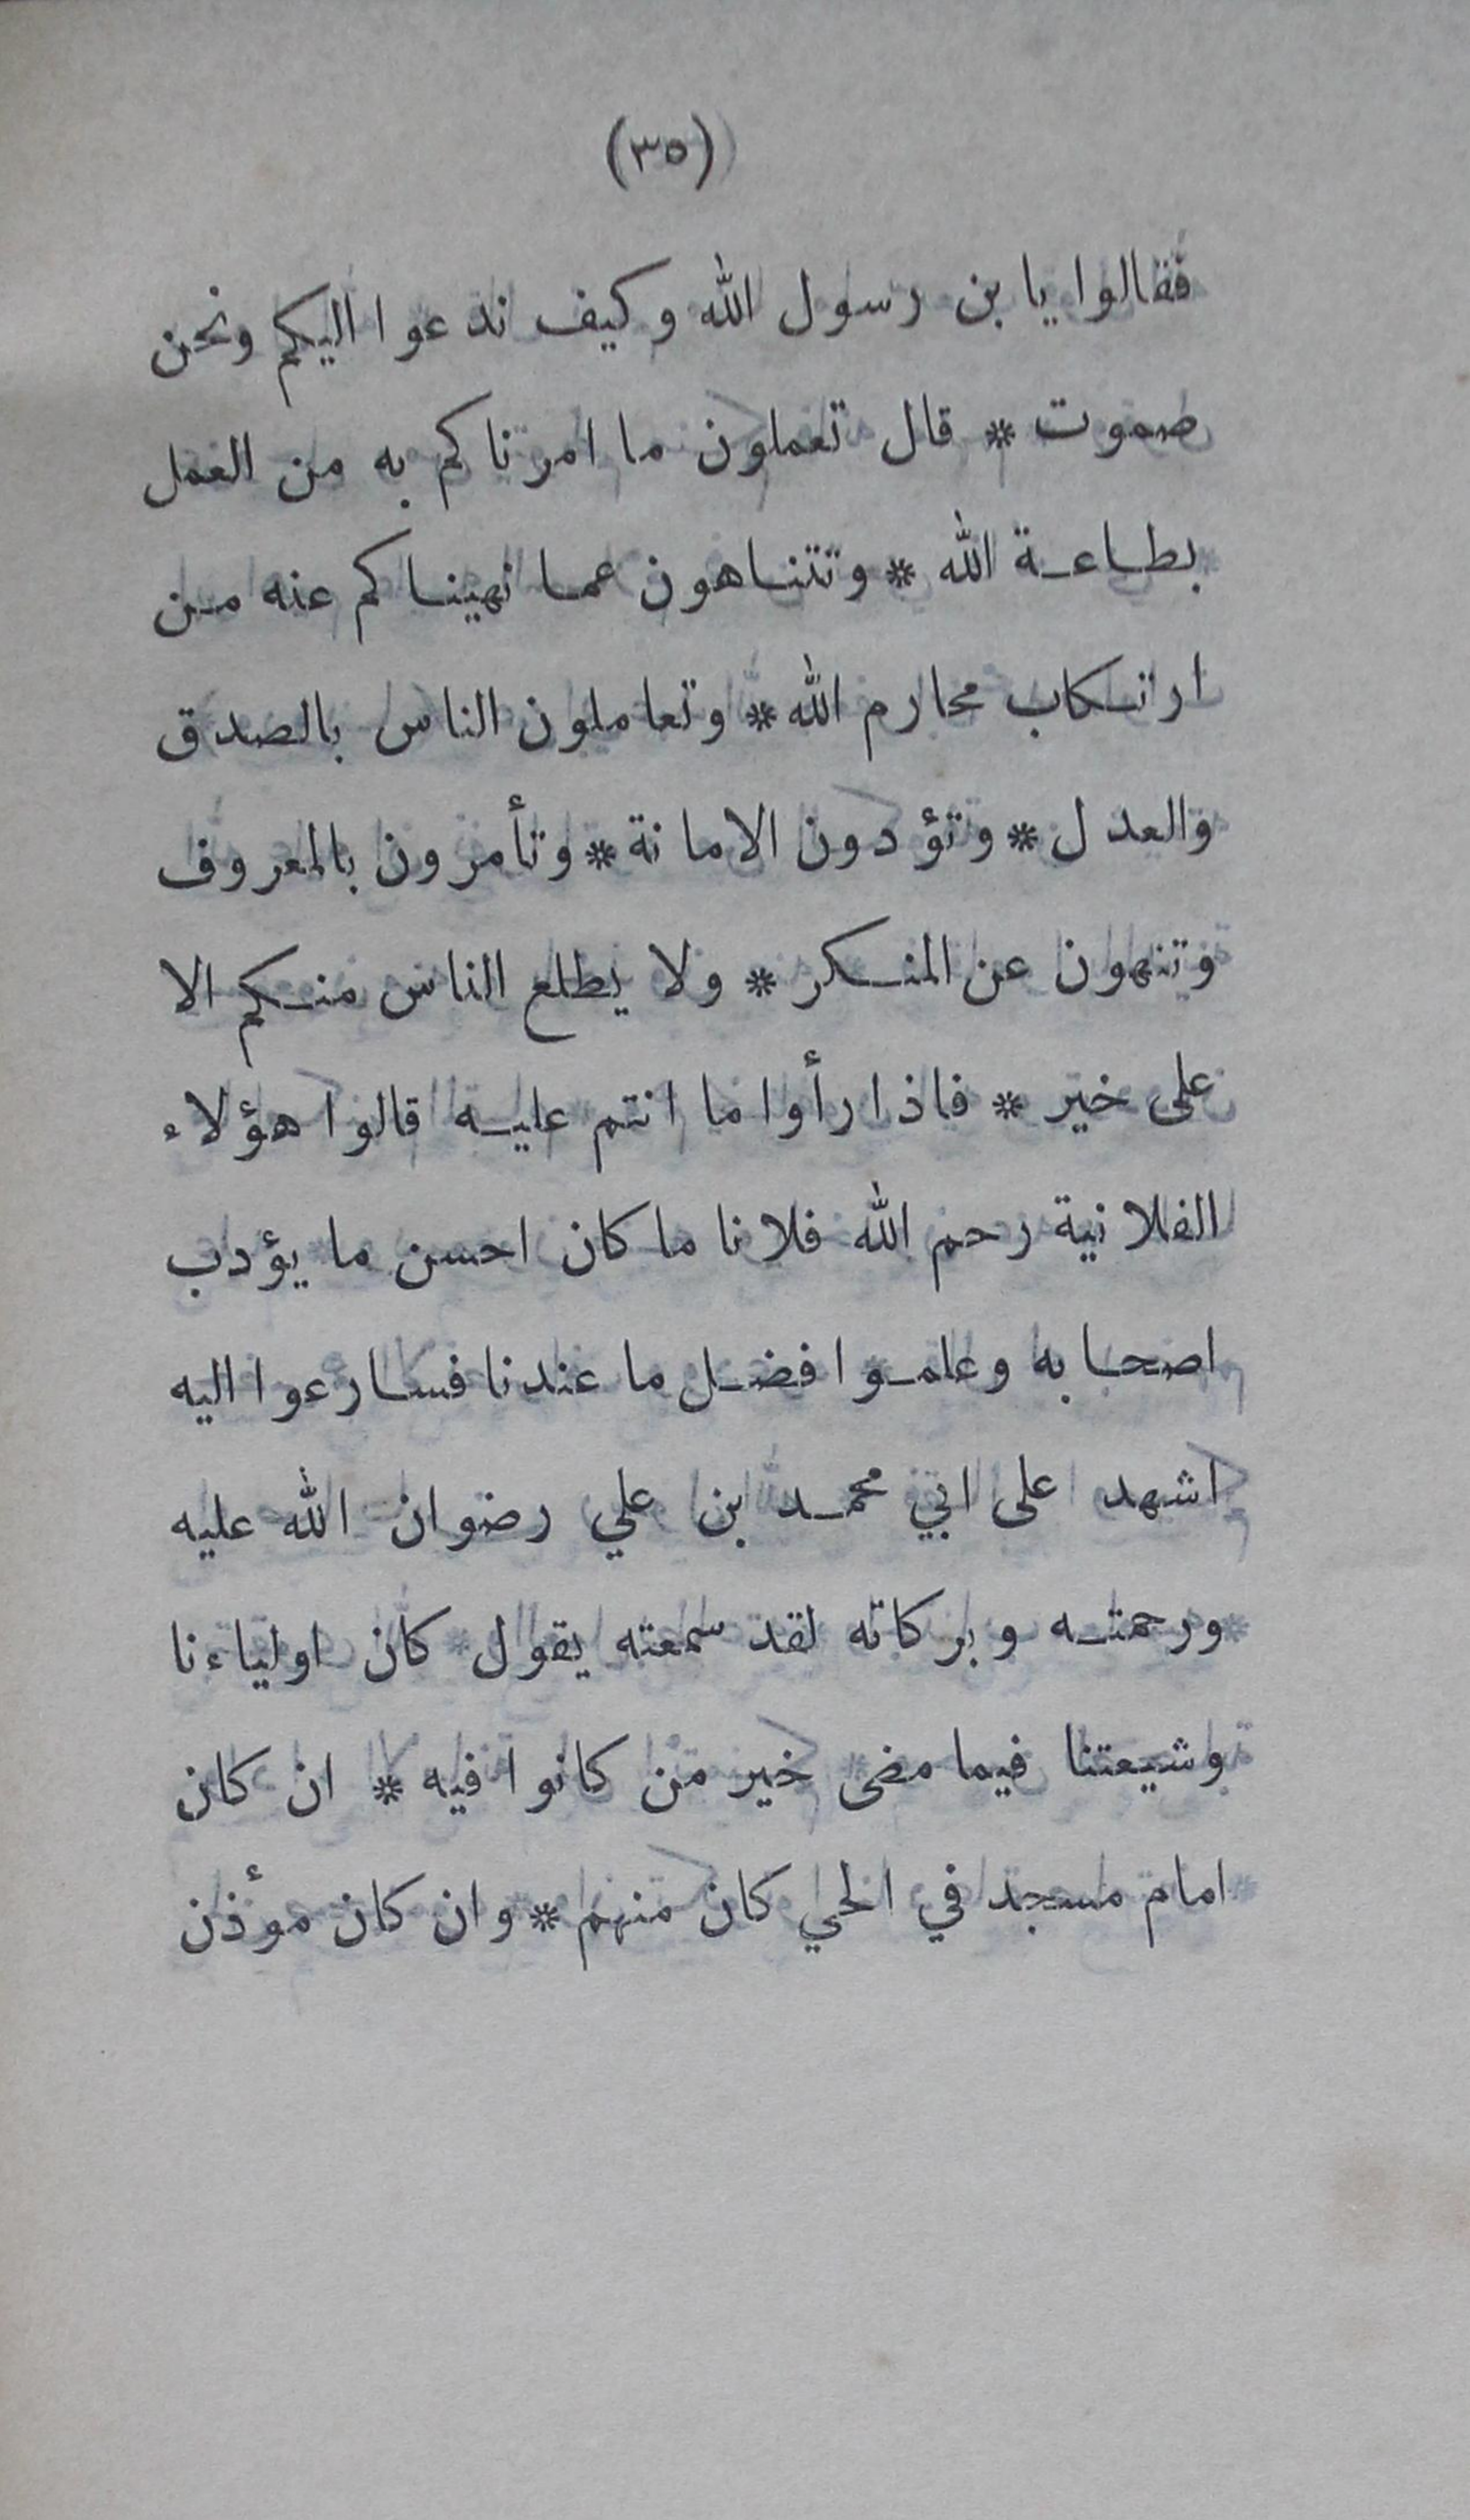 (٣٥)
فقالوا يا بن رسول الله وكيف ندعوا اليكم ونحن
صموت * قال تعملون ما امرناكم به من العمل
بطاعة الله * وتتناهون عما نهيناكم عنه من
ارتكاب محارم الله * وتعاملون الناس بالصدق
والعدل * وتؤدون الامانة * وتأمرون بالمعروف
وتنهون عن المنكر * ولا يطلع الناس منكم الا
على خير * فاذا رأوا ما انتم عليه قالوا هؤلاء
الفلانية رحم الله فلانا ما كان احسن ما يؤدب
اصحابه وعلموا فضل ما عندنا فسارعوا اليه
اشهد على ابي محمد بن علي رضوان الله عليه
ورحمته وبركاته لقد سمعته يقول كان اولياءنا
وشيعتنا فيما مضى خير من كانوا فيه * ان كان
امام مسجد في الحي كان منهم * وان كان مؤذن